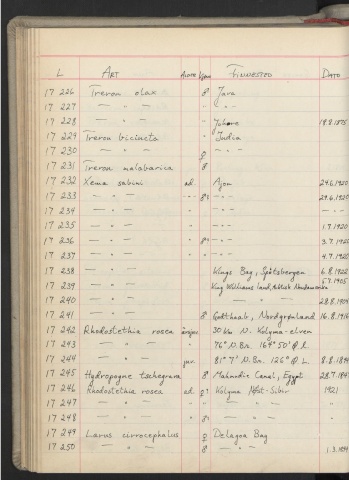 L ART ALDER KJØNN FINDESTED DATO
17 226 Treron olax ♂ Java
17 227 — " — " — " —
17 228 — " — " Johore 19.8.1875
17 229 Treron bicincta " India
17 230 — " — ♀ — " —
17 231 Treron malabarica ♂
17 232 Xema sabini ad. Ajon 24.6.1920
17 233 — " — — " — ♂ — " — 29.6.1920
17 234 — " — — " —
17 235 — " — " — " — 1.7.1920
17 236 — " — " ♂ — " — 3.7.1920
17 237 — " — " — " — 4.7.1920
17 238 — " — Kings Bay, Spitsbergen 6.8.1922
17 239 — " — King Williams land, Arktisk Nordamerika 5.7.1905
17 240 — " — — " — 28.8.1904
17 241 — " — ♂ Godthaab, Nordgrønland 16.8.1916
17 242 Rhodostethia rosea 30 km N. Kolyma-elven
17 243 — " — 76° N.Br. 164° 50' Ø L
17 244 — " — juv. 81° 7' N.Br. 126° Ø L. 8.8.1894
17 245 Hydroprogne tschegrava ♂ Mahmudie Canal, Egypt
17 246 Rhodostethia rosea ad. ♀? Kolyma Øst-Sibir 1921
17 247 — " — " " " "
17 248 — " — " ♂ — " —
17 249 Larus cirrocephalus ♀ Delagoa Bay
17 250 — " — ♂ — " —